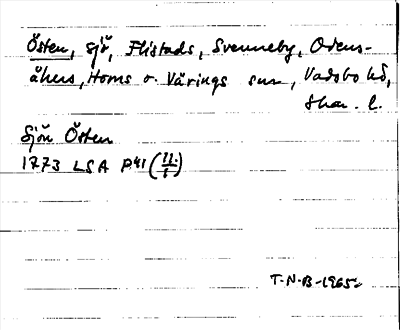 Östen, sjö, Flistads, Svenneby, Odens-
åkers, Horns o. Värings snr, Vadsbo hd,
Skar. l.
Sjön Östen
1773 LSA P41 (11/1)
T-N-B-1965